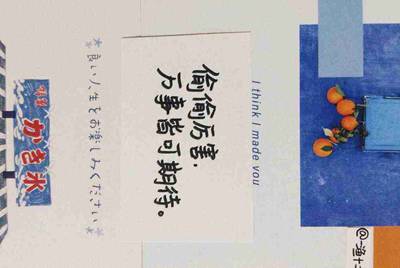 偷偷厉害，
万事皆可期待。
I think I made you
*良い人生をお楽しみください*
かき氷